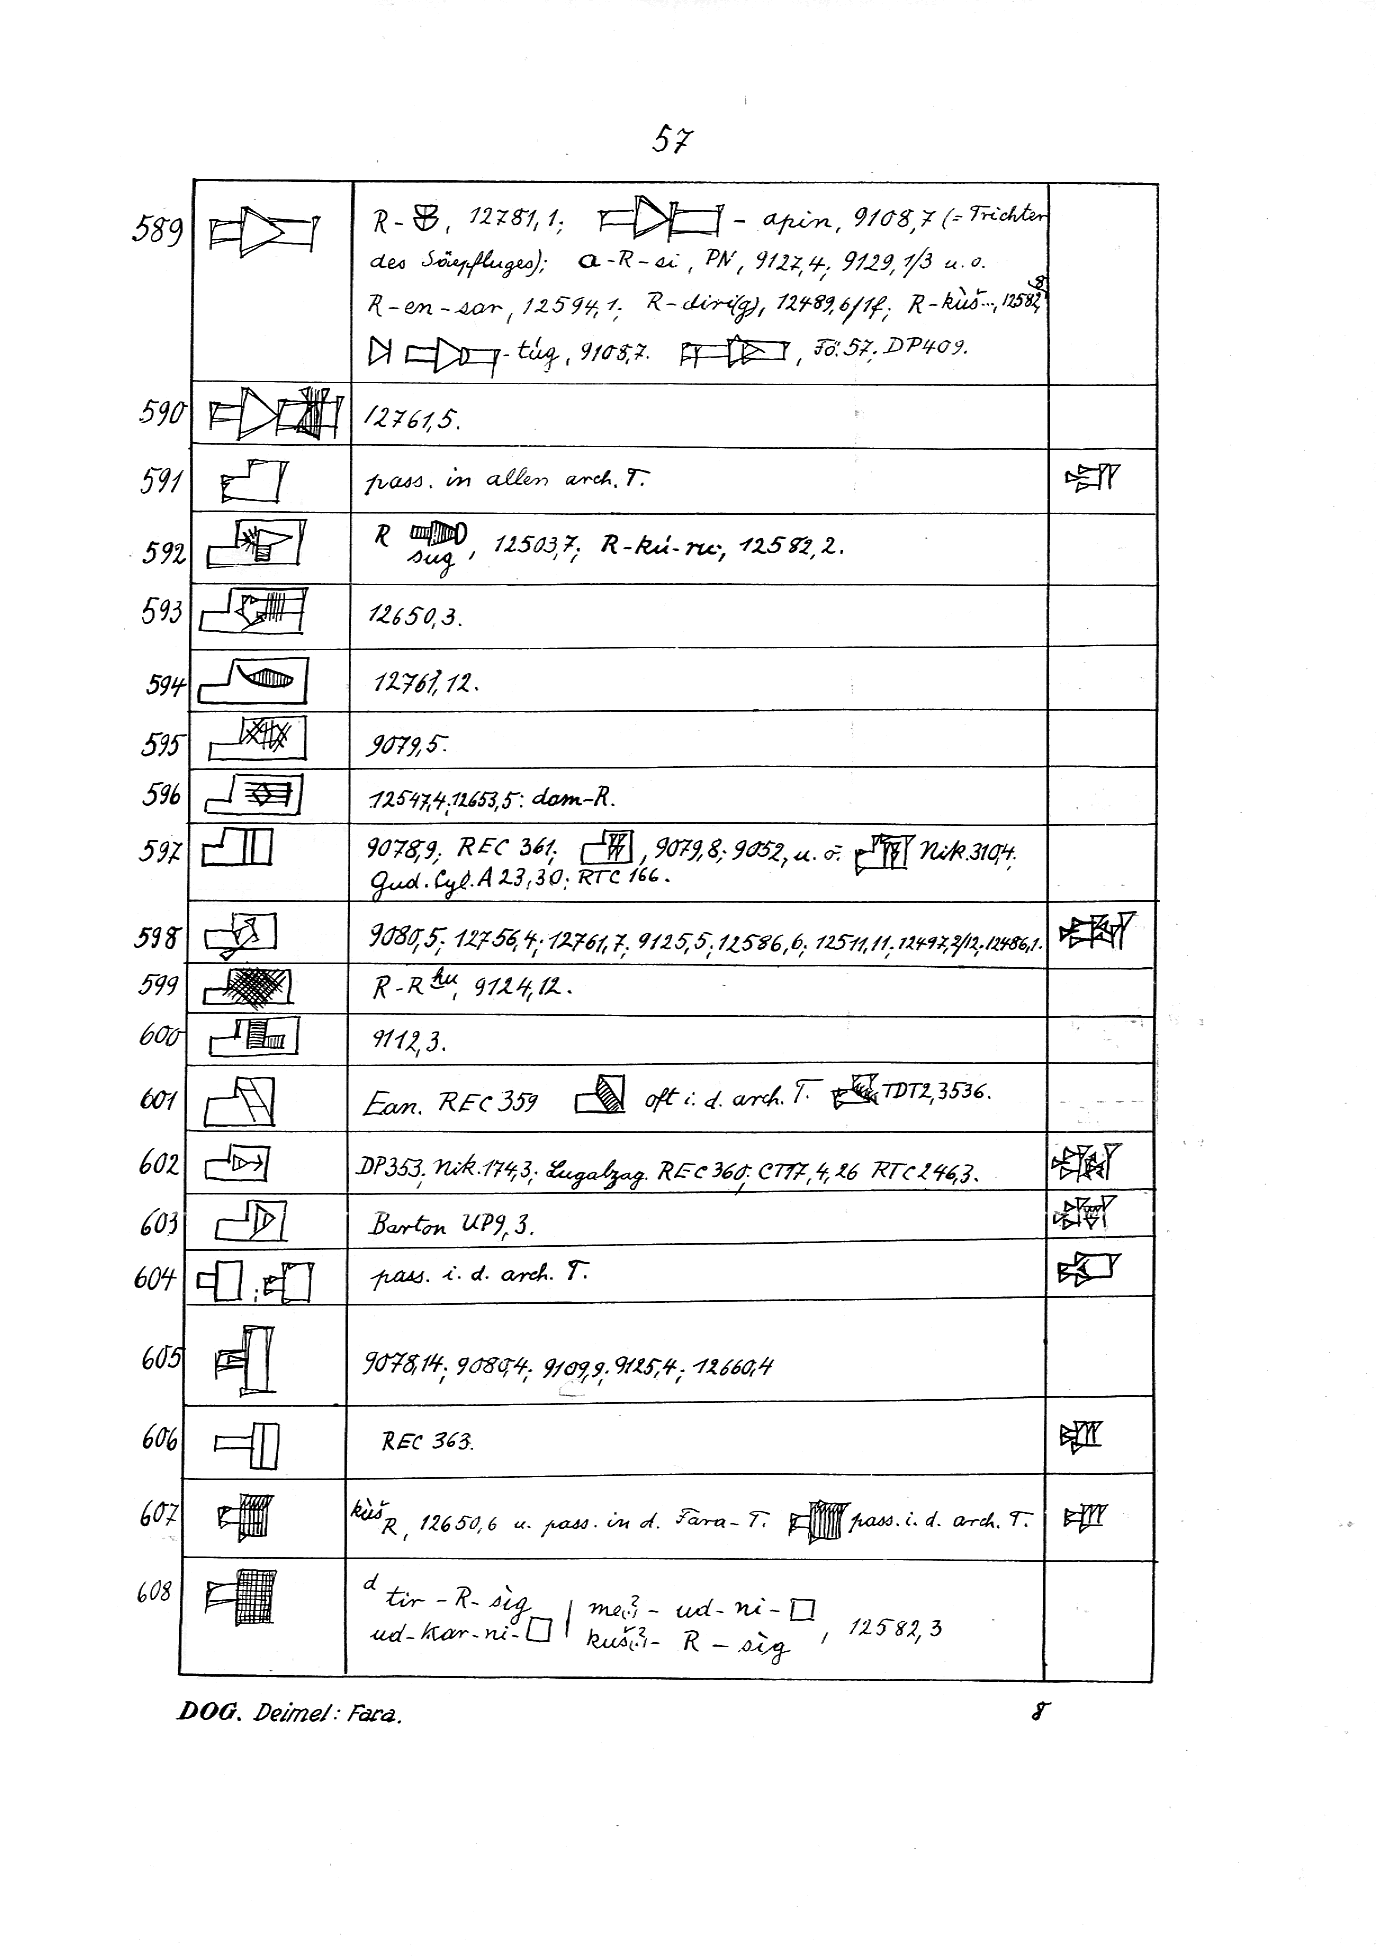 57
589 R- , 12781,1; - apin, 9108,7 (= Trichter
des Säepfluges); a-R-si, PN, 9127,4; 9129,1/3 u. o.
R-en-sar, 12594,1; R-diri(g), 12489,6/1f; R-kùš..., 12582,8
-túg, 9108,7. , Fö. 57; DP409.
590 12761,5.
591 pass. in allen arch. T.
592 R sug, 12503,7; R-kú-ru, 12582,2.
593 12650,3.
594 12761,12.
595 9079,5.
596 12547,4; 12653,5: dam-R.
597 9078,9; REC 361; , 9079,8; 9052, u. ö. Nik. 310,4;
Gud. Cyl. A 23,30; RTC 166.
598 9080,5; 12756,4; 12761,7; 9125,5; 12586,6; 12511,11; 12497,2/12; 12486,1.
599 R-R hu, 9124,12.
600 9112,3.
601 Ean. REC 359 oft i. d. arch. T. TDT2,3536.
602 DP353; Nik. 174,3; Lugalzag. REC 360; CT17,4,26 RTC 246,3.
603 Barton UP9,3.
604 ; pass. i. d. arch. T.
605 9078,14; 9080,4; 9109,9; 9125,4; 12660,4
606 REC 363.
607 kùš R, 12650,6 u. pass. in d. Fara-T. pass. i. d. arch. T.
608 d tir-R-sìg | me(?)- ud-ni-
ud-kar-ni- | kuš(?)- R-sìg , 12582,3
DOG. Deimel: Fara. 8